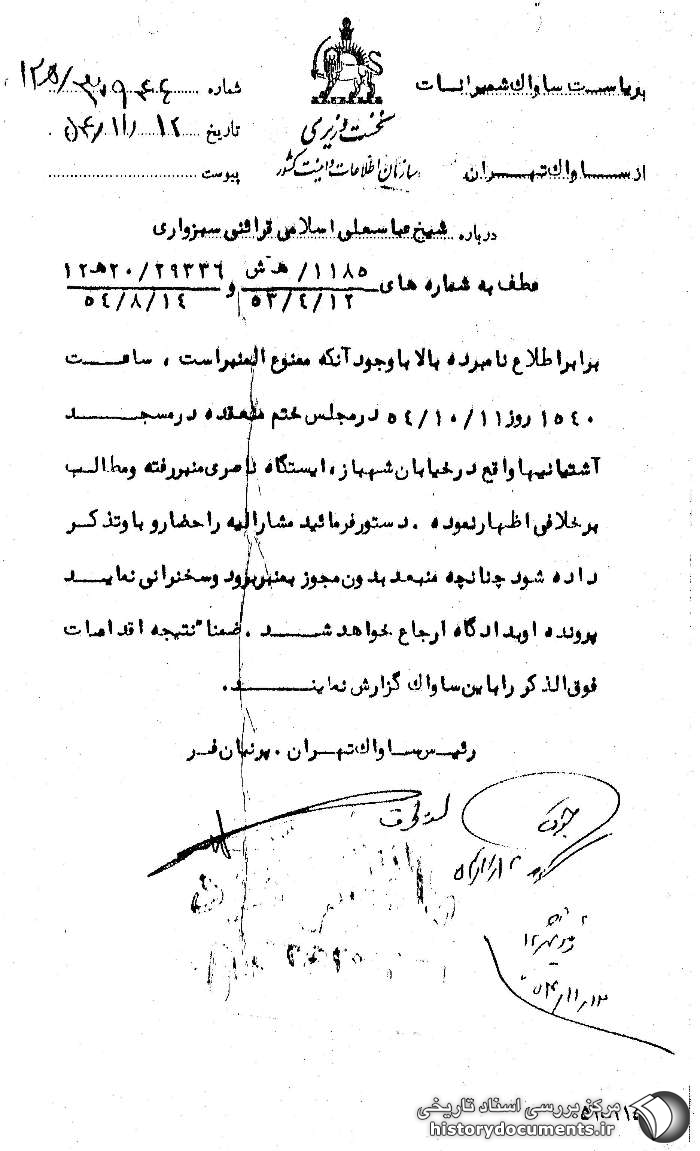 بریاست ساواك شمیرانات
از ســـاواك تهـــران
نخست وزیری
سازمان اطلاعات و امنیت کشور
شماره
تاریخ ۱۲ /۱۱/ ۵۴
پیوست
درباره شیخ عباسعلی اسلامی قرائنی سبزواری
عطف به شماره های ۱۱۸۵/ هـ ش و ۲۹۳۳۶/ ۲۰هـ۱۲
۵۳/۴/۱۲ ۵۴/۸/۱۴
برابر اطلاع نامبرده بالا با وجود آنکه ممنوع المنبر است ، ساعــت
۱۵۴۰ روز ۵۴/۱۰/۱۱ در مجلس ختم منعقده در مسجــد
آشتیانیها واقع در خیابان شهباز، ایستگاه ناصری منبر رفته و مطالب
بر خلافی اظهار نموده . دستور فرمائید مشارالیه را احضار و باو تذکر
داده شود چنانچه منبعد بدون مجوز بمنبر برود و سخنرانی نمایــد
پرونده او بدادگاه ارجاع خواهد شــد . ضمنا" نتیجه اقدامات
فوق الذکر را باین ساواك گزارش نماینــد.
رئیس ســاواك تهــران . پرنیان فر
۵۴/۱۱/۱۳
مرکز بررسی اسناد تاریخی
historydocuments.ir